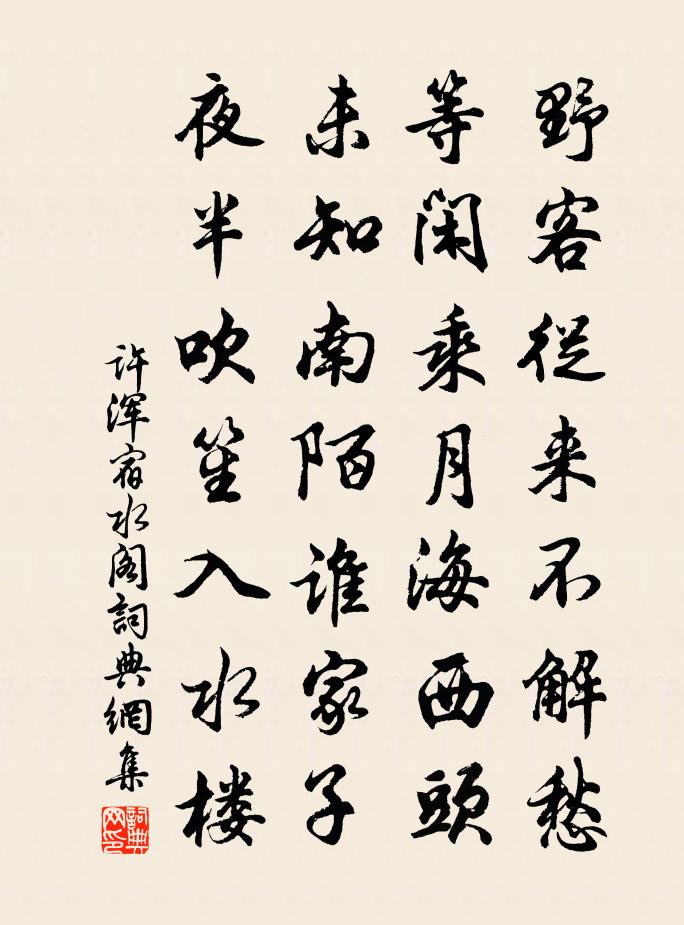 野客從来不解愁
等閑乘月海西頭
未知南陌誰家子
夜半吹笙入水楼
许浑宿水阁詞典網集
詞典网印